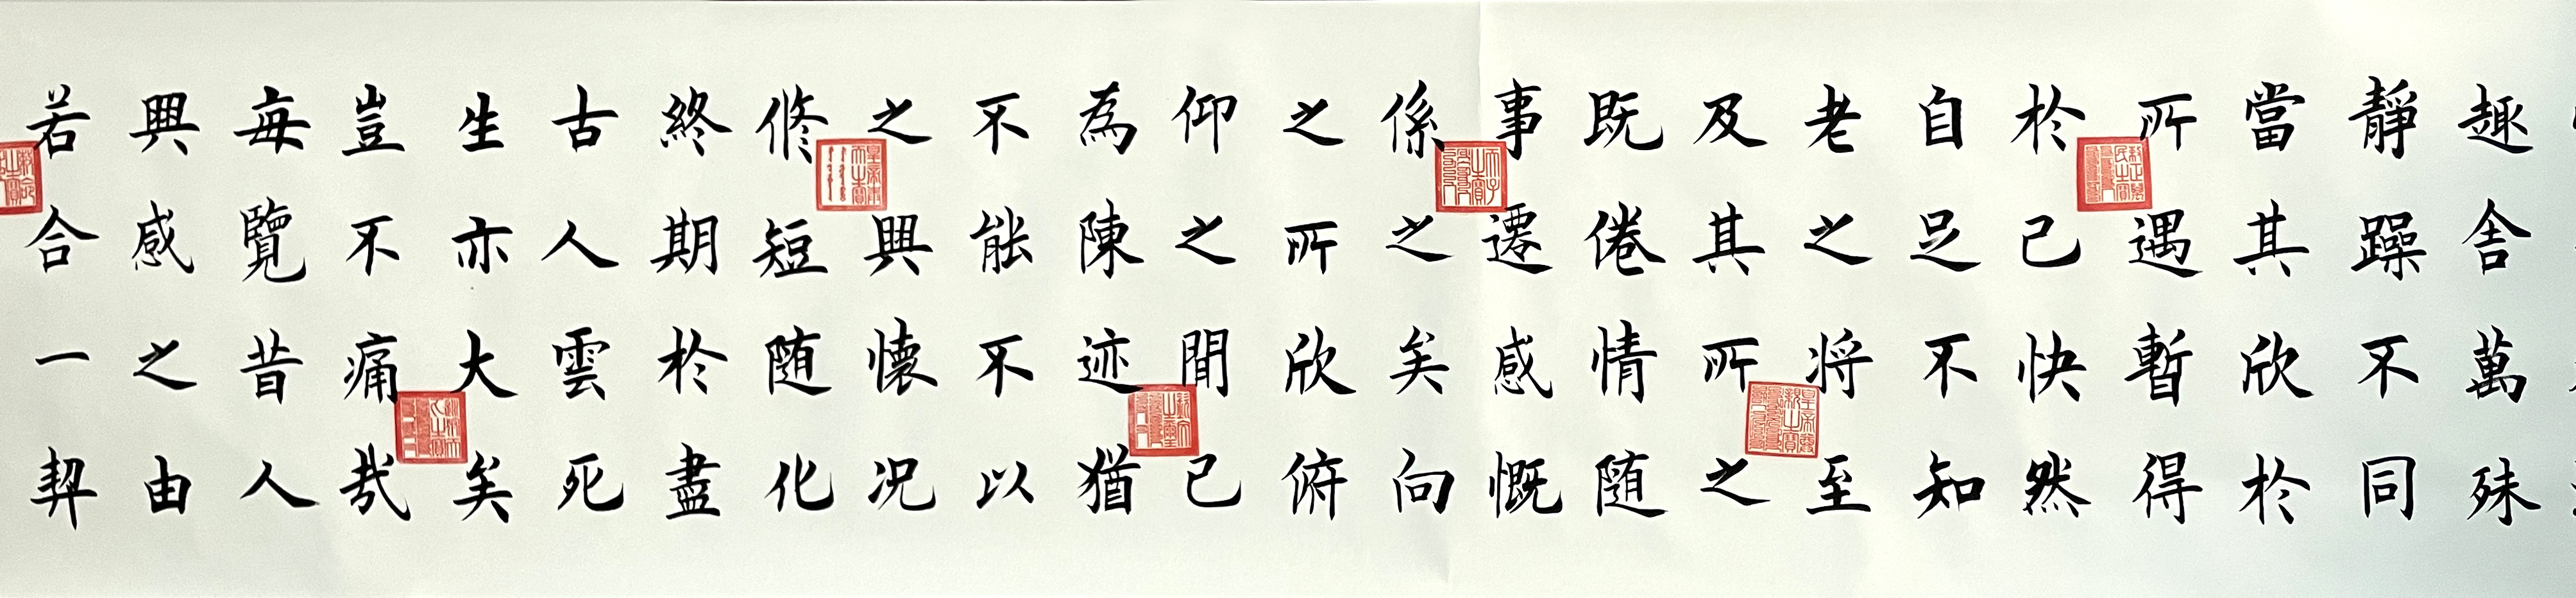 趣舎萬殊
靜躁不同
當其欣於
所遇暫得
於己快然
自足不知
老之将至
及其所之
既倦情随
事遷感慨
係之矣向
之所欣俯
仰之間已
為陳迹猶
不能不以
之興懷况
修短随化
終期於盡
古人雲死
生亦大矣
豈不痛哉
每覽昔人
興感之由
若合一契